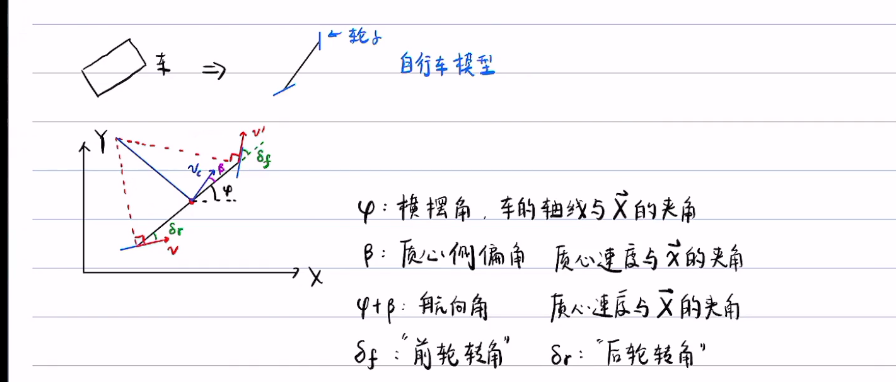 车 ⇒ ← 轮子 自行车模型
Y
v'
δf
vc β
φ
δr
v
X
φ: 横摆角, 车的轴线与X⃗的夹角
β: 质心侧偏角 质心速度与x⃗的夹角
φ+β: 航向角 质心速度与X⃗的夹角
δf: "前轮转角" δr: "后轮转角"